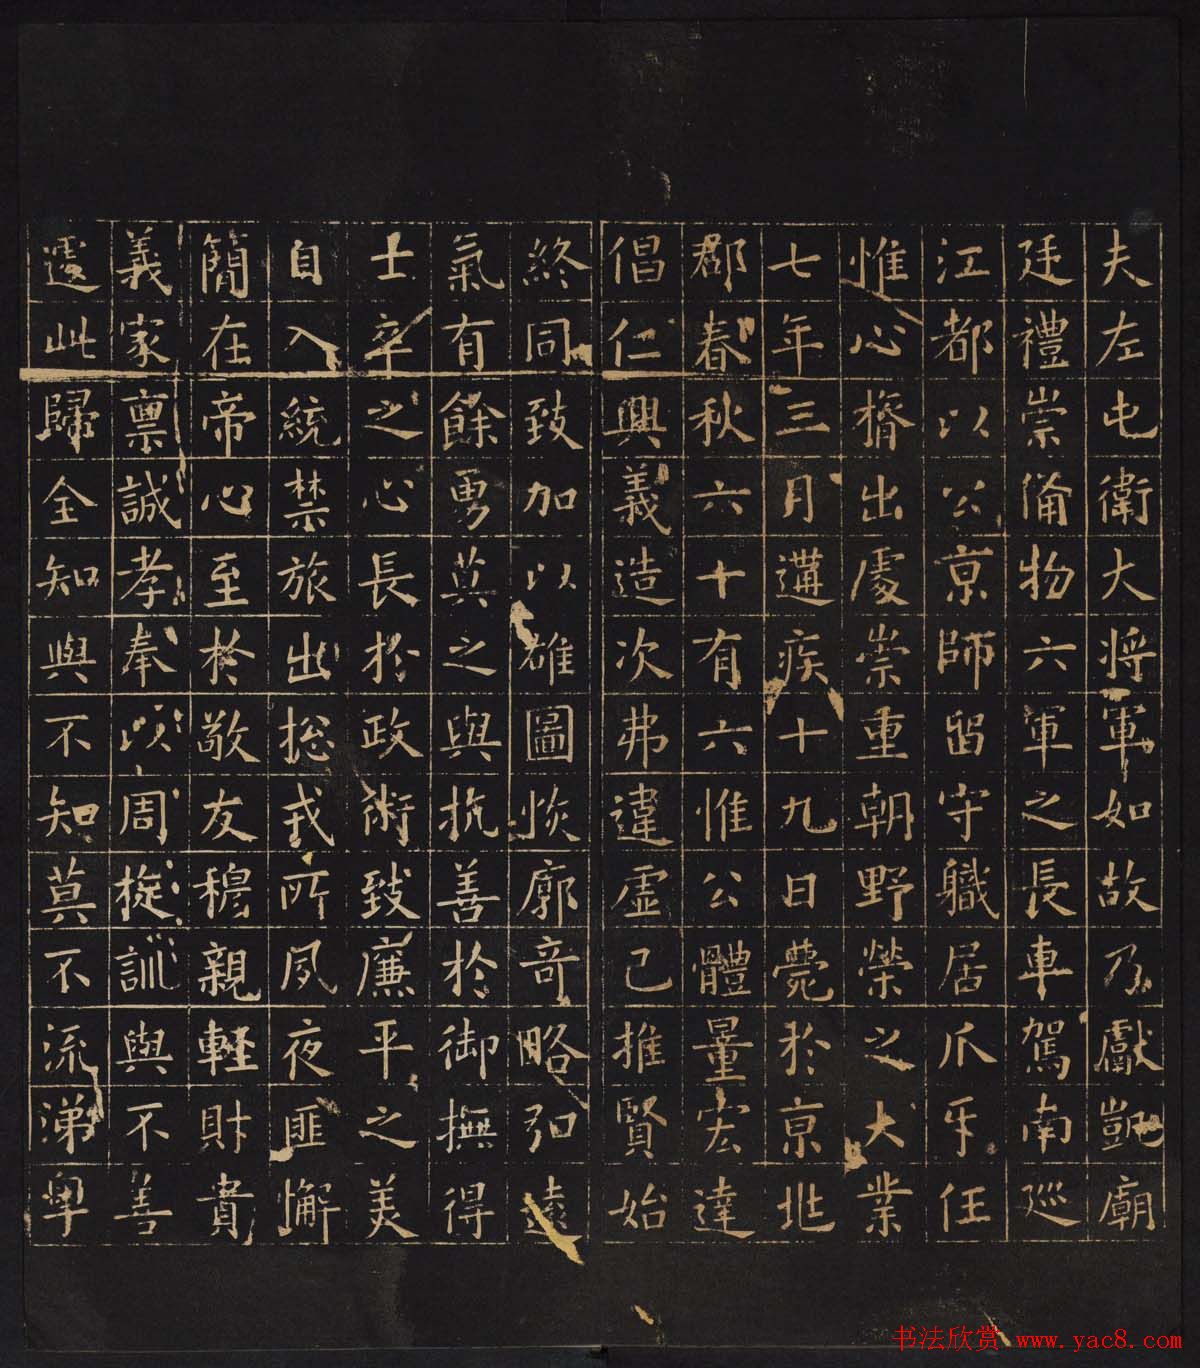 夫左屯衛大將軍如故乃獻凱廟
廷禮崇備物六軍之長車駕南巡
江都以公京師留守職居爪牙任
惟心膂出處崇重朝野榮之大業
七年三月遘疾十九日薨於京兆
郡春秋六十有六惟公體量宏達
倡仁興義造次弗違虛己推賢始
終同致加以雄圖恢廓奇略弘遠
氣有餘勇莫之與抗善於御撫得
士卒之心長於政術致廉平之美
自入統禁旅出揔戎所夙夜匪懈
簡在帝心至於敬友穆親輕財貴
義家稟誠孝奉以周旋訓與不善
遽此歸全知與不知莫不流涕
书法欣赏 www.yac8.com